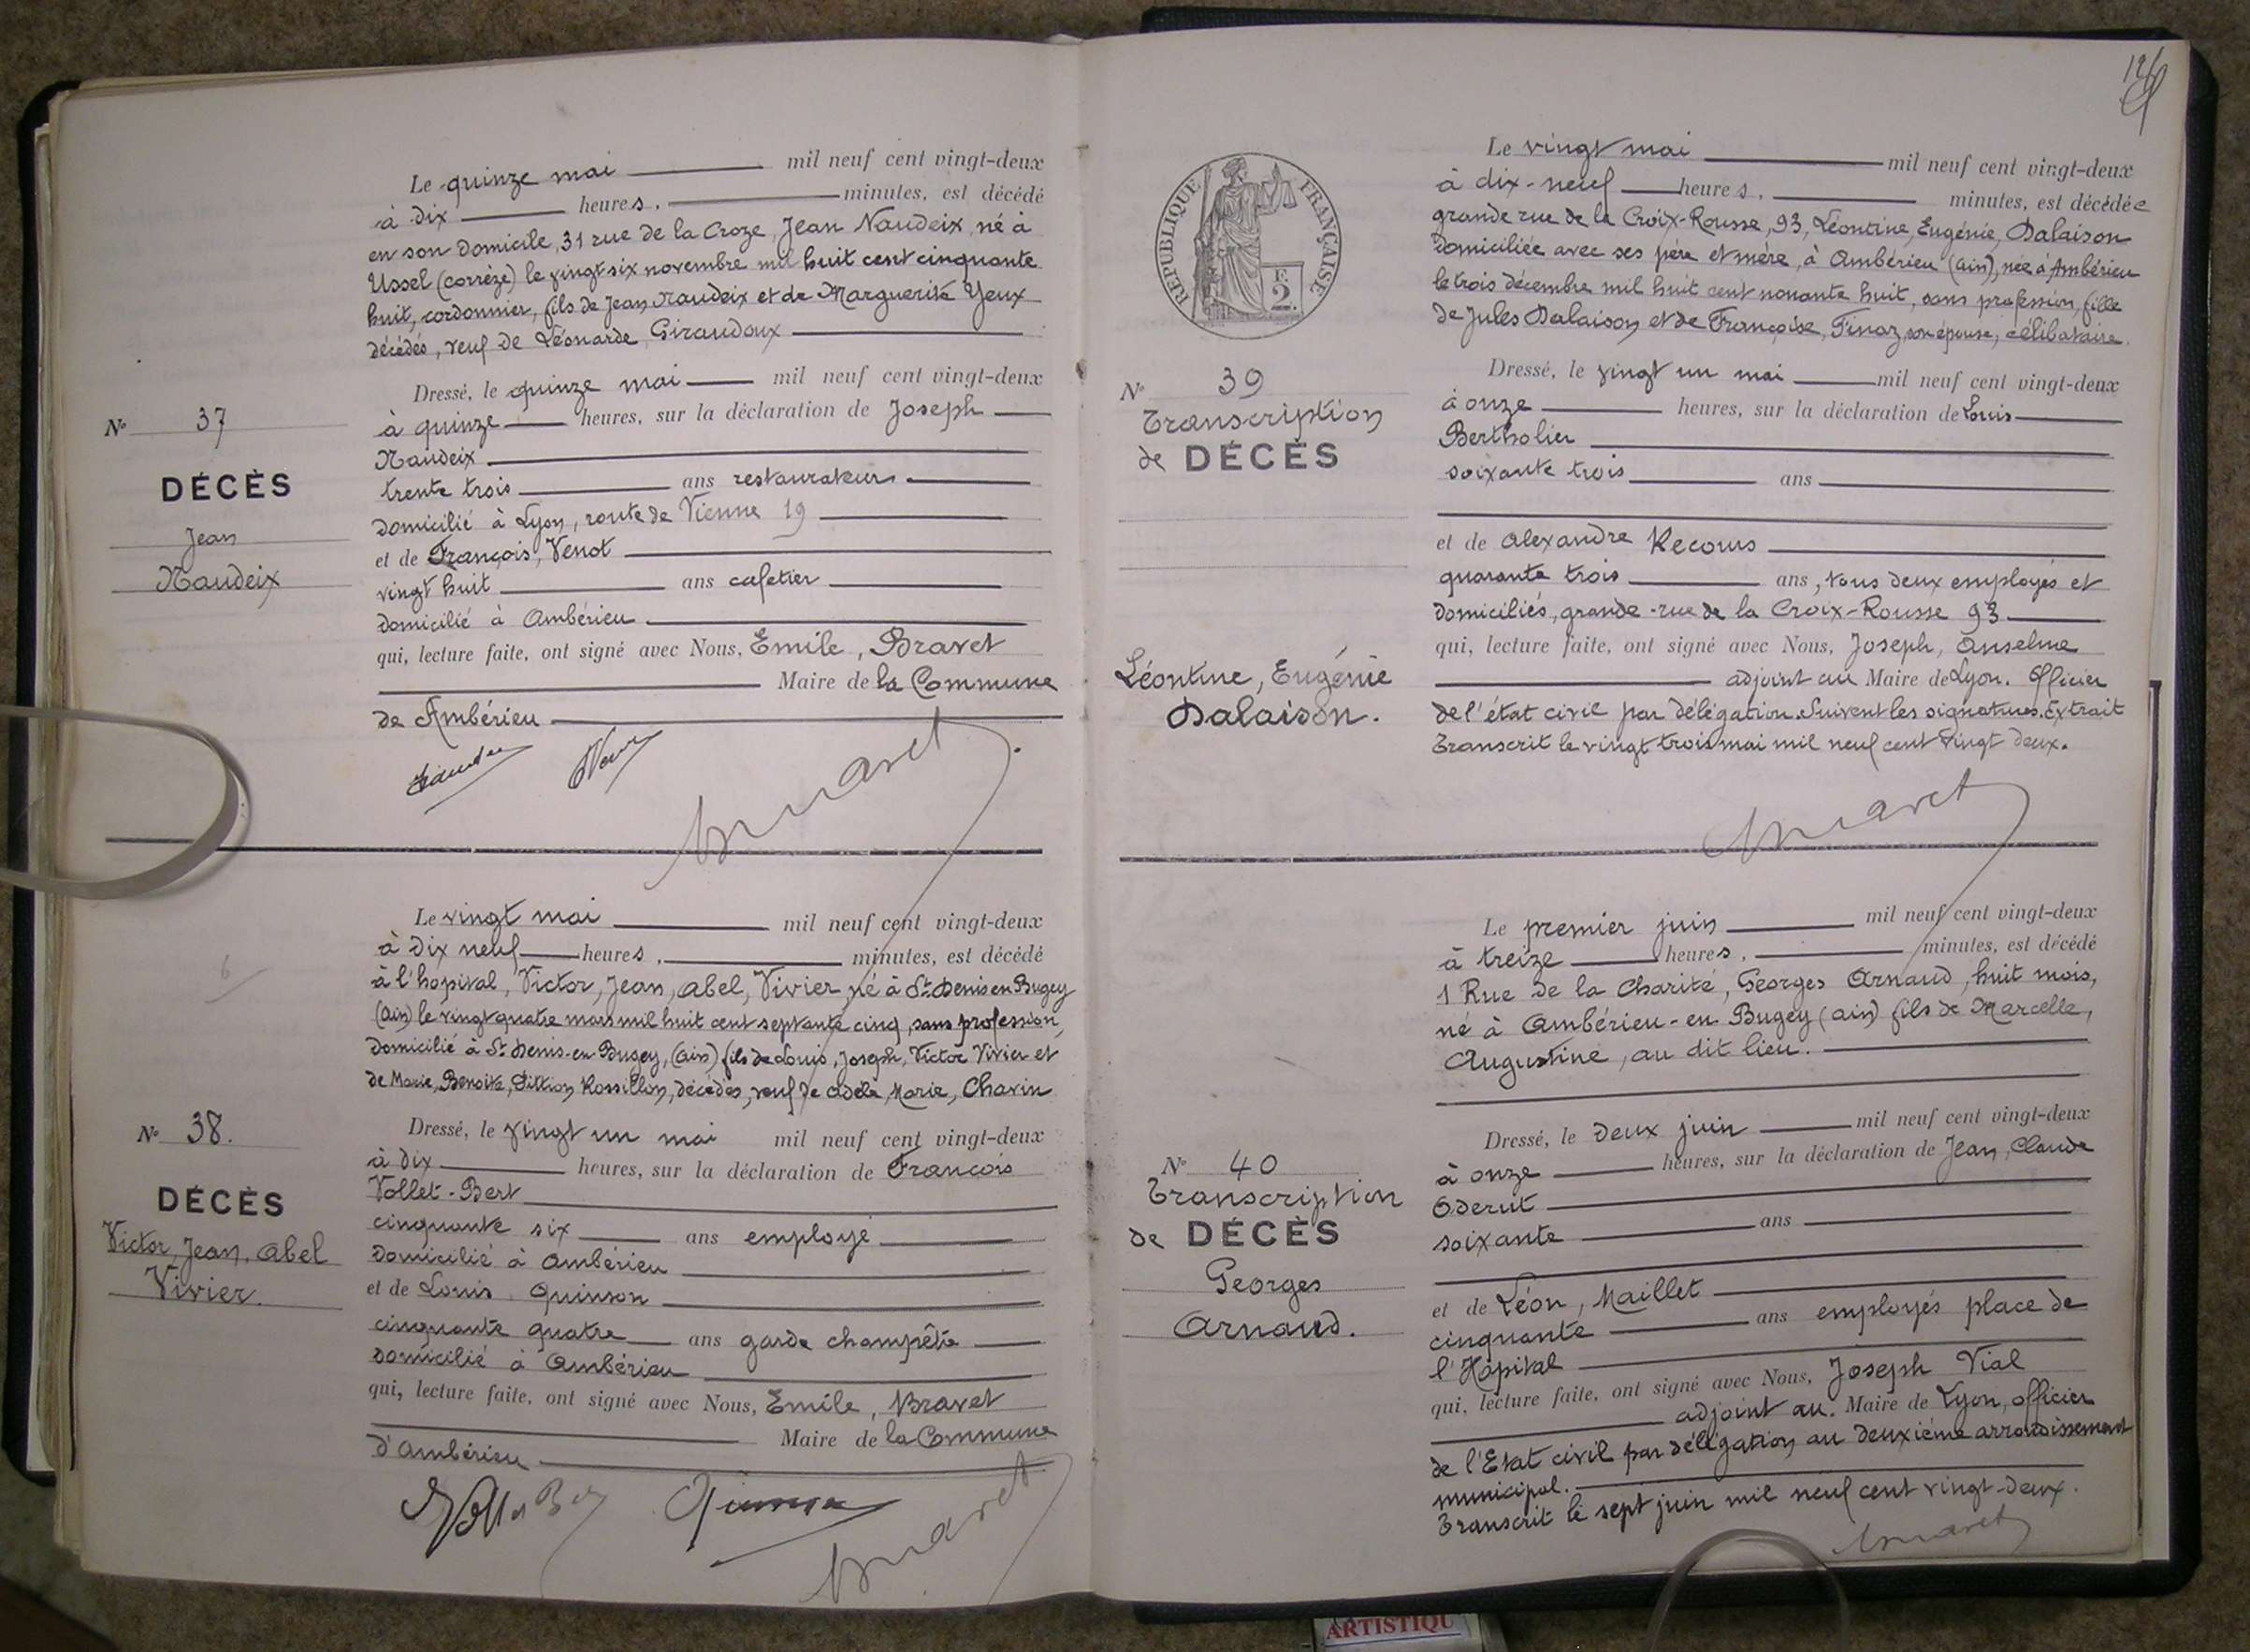 Le quinze mai mil neuf cent vingt-deux
à dix heures, minutes, est décédé
en son domicile, 31 rue de la Croze, Jean Naudeix, né à
Ussel (corrèze) le vingt six novembre mil huit cent cinquante
huit, cordonnier, fils de Jean Naudeix et de Marguerite Yeux
décédés, veuf de Léonarde Giraudoux
Dressé, le quinze mai mil neuf cent vingt-deux
à quinze heures, sur la déclaration de Joseph
Naudeix
trente trois ans restaurateur
domicilié à Lyon, route de Vienne 19
et de François, Venot
vingt huit ans cafetier
domicilié à Ambérieu
qui, lecture faite, ont signé avec Nous, Emile, Bravet
Maire de la Commune
de Ambérieu
N° 37
DÉCÈS
Jean
Naudeix
Le vingt mai mil neuf cent vingt-deux
à dix neuf heures, minutes, est décédé
à l'hopital, Victor, Jean, Abel, Vivier né à St Denis en Bugey
(Ain) le vingt quatre mars mil huit cent septante cinq, sans profession,
domicilié à St Denis-en-Bugey, (Ain) fils de Louis, Joseph, Victor Vivier et
de Marie, Benoite, Rossillon, décédés, veuf de Adèle, Marie, Charin
Dressé, le vingt un mai mil neuf cent vingt-deux
à dix heures, sur la déclaration de François
Vollet-Bert
cinquante six ans employé
domicilié à Ambérieu
et de Louis Quinson
cinquante quatre ans garde champête
domicilié à Ambérieu
qui, lecture faite, ont signé avec Nous, Emile, Bravet
Maire de la Commune
d'Ambérieu
N° 38.
DÉCÈS
Victor, Jean, Abel
Vivier.
RÉPUBLIQUE FRANÇAISE
2
Le vingt mai mil neuf cent vingt-deux
à dix-neuf heures, minutes, est décédée
grande rue de la Croix-Rousse, 93, Léontine, Eugénie, Dalaison
domiciliée avec ses père et mère, à Ambérieu (Ain), née à Ambérieu
le trois décembre mil huit cent nonante huit, sans profession, fille
de Jules Dalaison et de Françoise, Tinaz, son épouse, célibataire.
Dressé, le vingt un mai mil neuf cent vingt-deux
à onze heures, sur la déclaration de Louis
Bertholier
soixante trois ans
et de Alexandre Recours
quarante trois ans, tous deux employés et
domiciliés, grande-rue de la Croix-Rousse 93
qui, lecture faite, ont signé avec Nous, Joseph, Anselme
adjoint au Maire de Lyon. Officier
de l'état civil par délégation. Suivent les signatures. Extrait
Transcrit le vingt trois mai mil neuf cent vingt deux.
N° 39
Transcription
de DÉCÈS
Léontine, Eugénie
Dalaison.
Le premier juin mil neuf cent vingt-deux
à treize heures, minutes, est décédé
1 Rue de la Charité, Georges Arnaud, huit mois,
né à Ambérieu-en-Bugey (Ain) fils de Marcelle,
Augustine, au dit lieu.
Dressé, le deux juin mil neuf cent vingt-deux
à onze heures, sur la déclaration de Jean, Claude
Oderut
soixante ans
et de Léon, Maillet
cinquante ans employés place de
l'Hôpital
qui, lecture faite, ont signé avec Nous, Joseph Vial
adjoint au. Maire de Lyon, officier
de l'Etat civil par délégation au deuxième arrondissement
municipal.
Transcrit le sept juin mil neuf cent vingt-deux.
N° 40
Transcription
de DÉCÈS
Georges
Arnaud.
ARTISTIQU